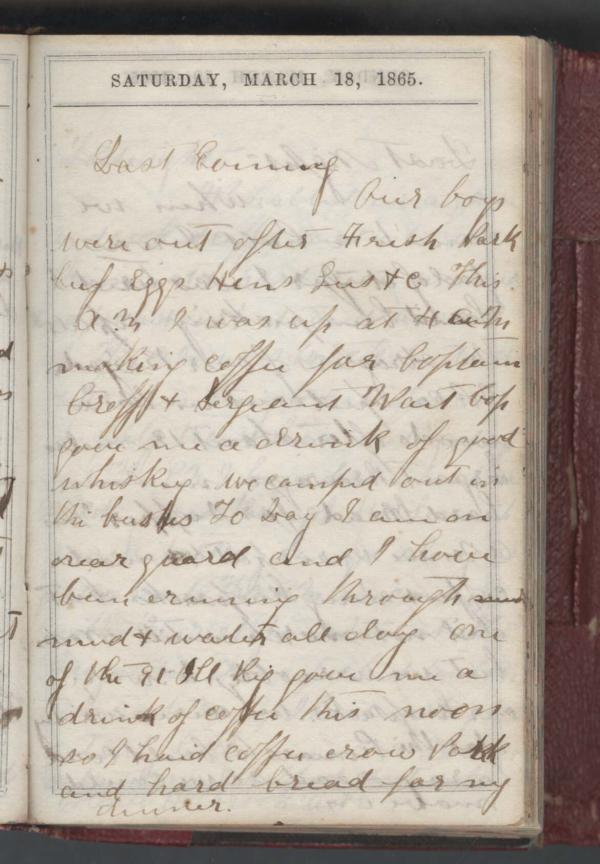 SATURDAY, MARCH 18, 1865.
Last Evening
Our boys
were out after Fresh Pork
beef Eggs Hens Gees &c This
A.M I was up at 4
making coffee for Captain
& Sergeant Wait Cap
gave me a drink of good
whiskey we camped out in
the bushes To Day I am on
rear guard and I have
been running through
mud & water all day One
of the 91 Ill Rig gave me a
drink of coffee this noon
so I had coffee craw Pork
and hard bread for my
dinner.